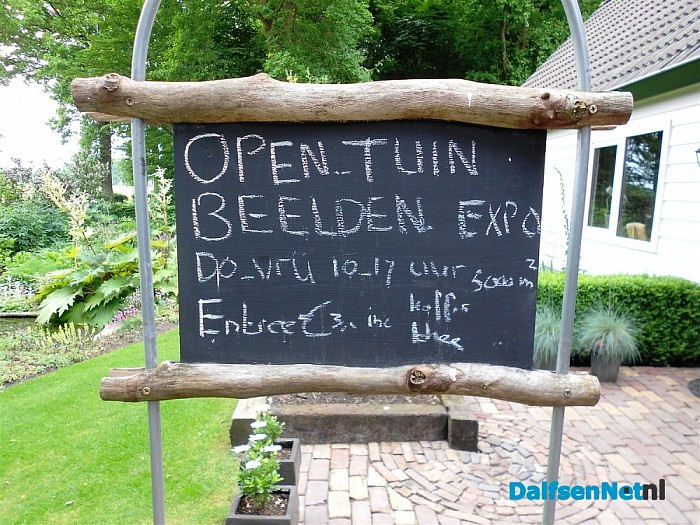 OPEN-TUIN
BEELDEN EXPO
Do-vrij 10-17 uur 5000m²
Entree €3,- inc koffie
thee
DalfsenNet.nl